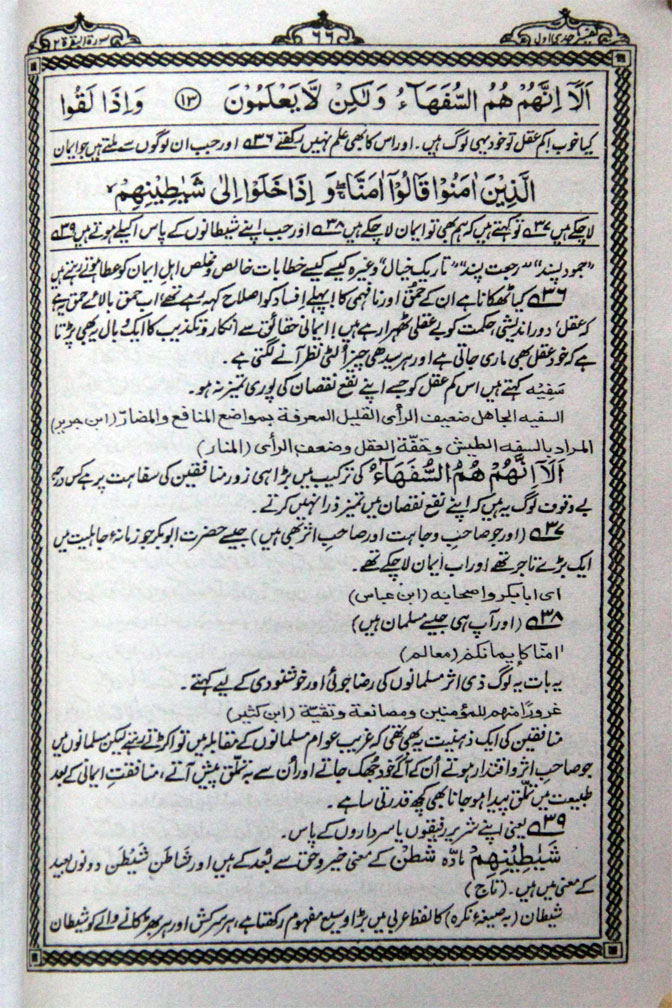 تفسیر ماجدی اول
۶۶
سورۃ البقرۃ ۲
اَلَاۤ اِنَّهُمْ هُمُ السُّفَهَآءُ وَلٰكِنْ لَّا يَعْلَمُوْنَ ۝۱۳ وَاِذَا لَقُوا
کیا خوب! کم عقل تو خود یہی لوگ ہیں۔ اور اس کا بھی علم نہیں رکھتے ۳۶ اور جب ان لوگوں سے ملتے ہیں جو ایمان
الَّذِيْنَ اٰمَنُوْا قَالُوْۤا اٰمَنَّا ۖۚ وَاِذَا خَلَوْا اِلٰى شَيٰطِيْنِهِمْ ۙ
لا چکے ہیں ۳۷ تو کہتے ہیں کہ ہم بھی تو ایمان لا چکے ہیں ۳۸ اور جب اپنے شیطانوں کے پاس اکیلے ہوتے ہیں ۳۹
”جمود پسند“، ”رجعت پسند“، ”تاریک خیال“ وغیرہ کیسے کیسے خطابات خالص و مخلص اہلِ ایمان کو عطا ہوتے رہتے ہیں
۳۶ کیا ٹھکانا ہے ان کے حمق اور نافہمی کا! پہلے اِفساد کو اصلاح کہہ رہے تھے، اب حمق بالائے حمق یہ ہے
کہ عقل، دور اندیشی، حکمت کو بے عقلی ٹھہرا رہے ہیں! ایمانی حقائق سے انکار و تکذیب کا ایک وبال یہ بھی پڑتا
ہے کہ خود عقل بھی ماری جاتی ہے اور ہر سیدھی چیز اُلٹی نظر آنے لگتی ہے۔
سَفِیْہ کہتے ہیں اس کم عقل کو جسے اپنے نفع نقصان کی پوری تمیز نہ ہو۔
السفیه الجاهل ضعیف الرأی القلیل المعرفة بمواضع المنافع والمضارّ (ابن جریر)
المراد بالسفه الطیش وخفّة العقل وضعف الرأی (المنار)
اَلَاۤ اِنَّهُمْ هُمُ السُّفَهَآءُ کی ترکیب میں بڑا ہی زور منافقین کی سفاہت پر ہے کس درجہ
بے وقوف لوگ یہ ہیں کہ اپنے نفع نقصان میں تمیز ذرا نہیں کرتے۔
۳۷ (اور جو صاحبِ وجاہت اور صاحبِ اثر بھی ہیں) جیسے حضرت ابوبکر جو زمانۂ جاہلیت میں
ایک بڑے تاجر تھے اور اب ایمان لا چکے تھے۔
ای ابابکر واصحابه (ابن عباس)
۳۸ (اور آپ ہی جیسے مسلمان ہیں)
اٰمنّا کایمانکم (معالم)
یہ بات یہ لوگ ذی اثر مسلمانوں کی رضا جوئی اور خوشنودی کے لیے کہتے۔
غرورًا منهم للمؤمنین ومصانعة وتقیّة (ابن کثیر)
منافقین کی ایک ذہنیت یہ بھی تھی کہ غریب عوام مسلمانوں کے مقابلہ میں تو اکڑتے رہتے لیکن مسلمانوں میں
جو صاحبِ اثر و اقتدار ہوتے اُن کے آگے خود جُھک جاتے اور اُن سے بہ تملّق پیش آتے، منافقتِ ایمانی کے بعد
طبیعت میں تملّق پیدا ہو جانا بھی کچھ قدرتی سا ہے۔
۳۹ یعنی اپنے شریر رفیقوں یا سرداروں کے پاس۔
شَیٰطِیْنِهِمْ مادّہ شطن کے معنی خیر و حق سے بُعد کے ہیں اور شَاطَن شَیْطٰن دونوں بعید
کے معنی میں ہیں۔ (تاج)
شیطان (بہ صیغۂ نکرہ) کا لفظ عربی میں بڑا وسیع مفہوم رکھتا ہے، ہر سرکش اور ہر بھڑکانے والے کو شیطان